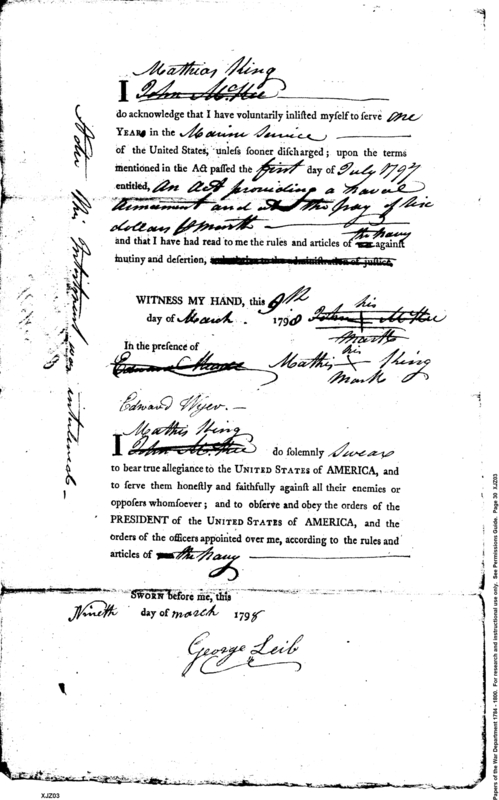 Mathias King
I John McKee
do acknowledge that I have voluntarily inlisted myself to serve one
YEAR in the Marine Service
of the United States, unless sooner discharged; upon the terms
mentioned in the Act passed the first day of July 1797
entitled, An Act providing a naval
armament and at the pay of
dollars
and that I have had read to me the rules and articles of the navy against
mutiny and desertion,
WITNESS MY HAND, this 9th
day of March . 1798 John his McKee
mark
In the presence of
Mathis his King
mark
Edward Wyer. —
Mathis King
I John McKee do solemnly swear
to bear true allegiance to the UNITED STATES of AMERICA, and
to serve them honestly and faithfully against all their enemies or
opposers whomsoever; and to observe and obey the orders of the
PRESIDENT of the UNITED STATES of AMERICA, and the
orders of the officers appointed over me, according to the rules and
articles of the navy
SWORN before me, this
Nineth day of march 1798
George Leib
Papers of the War Department 1784 - 1800. For research and instructional use only. See Permissions Guide. Page 30 XJZ03
XJZ03